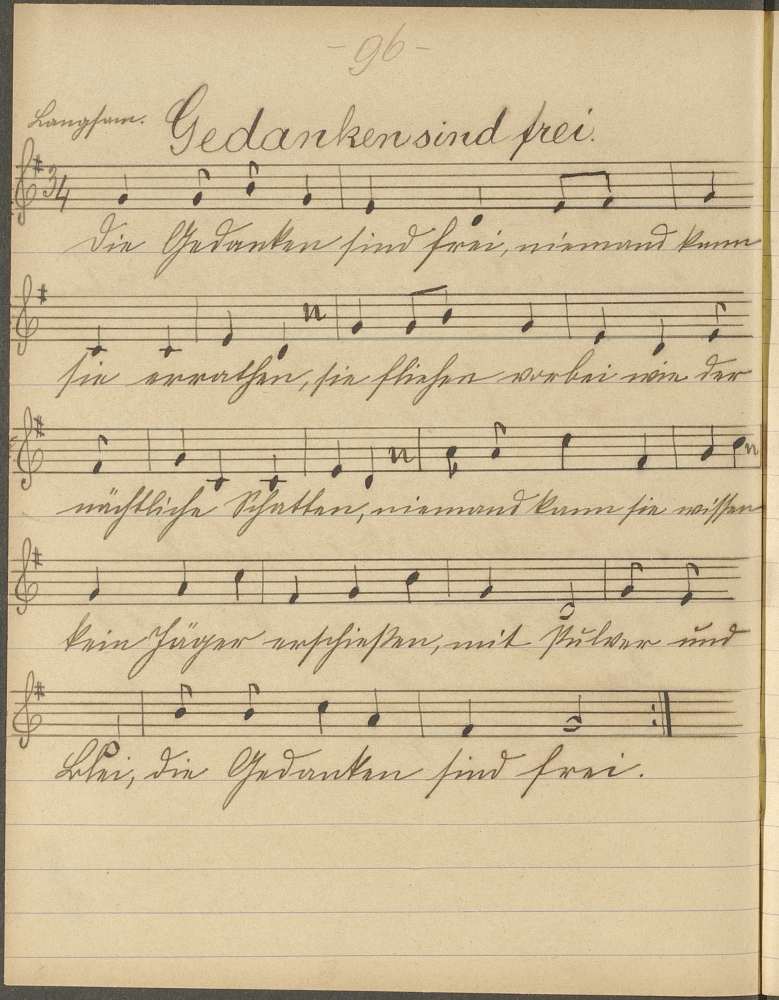 - 96 -
Langsam.
Gedanken sind frei.
3/4
Die Gedanken sind frei, niemand kann
sie errathen, sie fliehen vorbei wie der
nächtliche Schatten, niemand kann sie wissen
kein Jäger erschießen, mit Pulver und
Blei, die Gedanken sind frei.